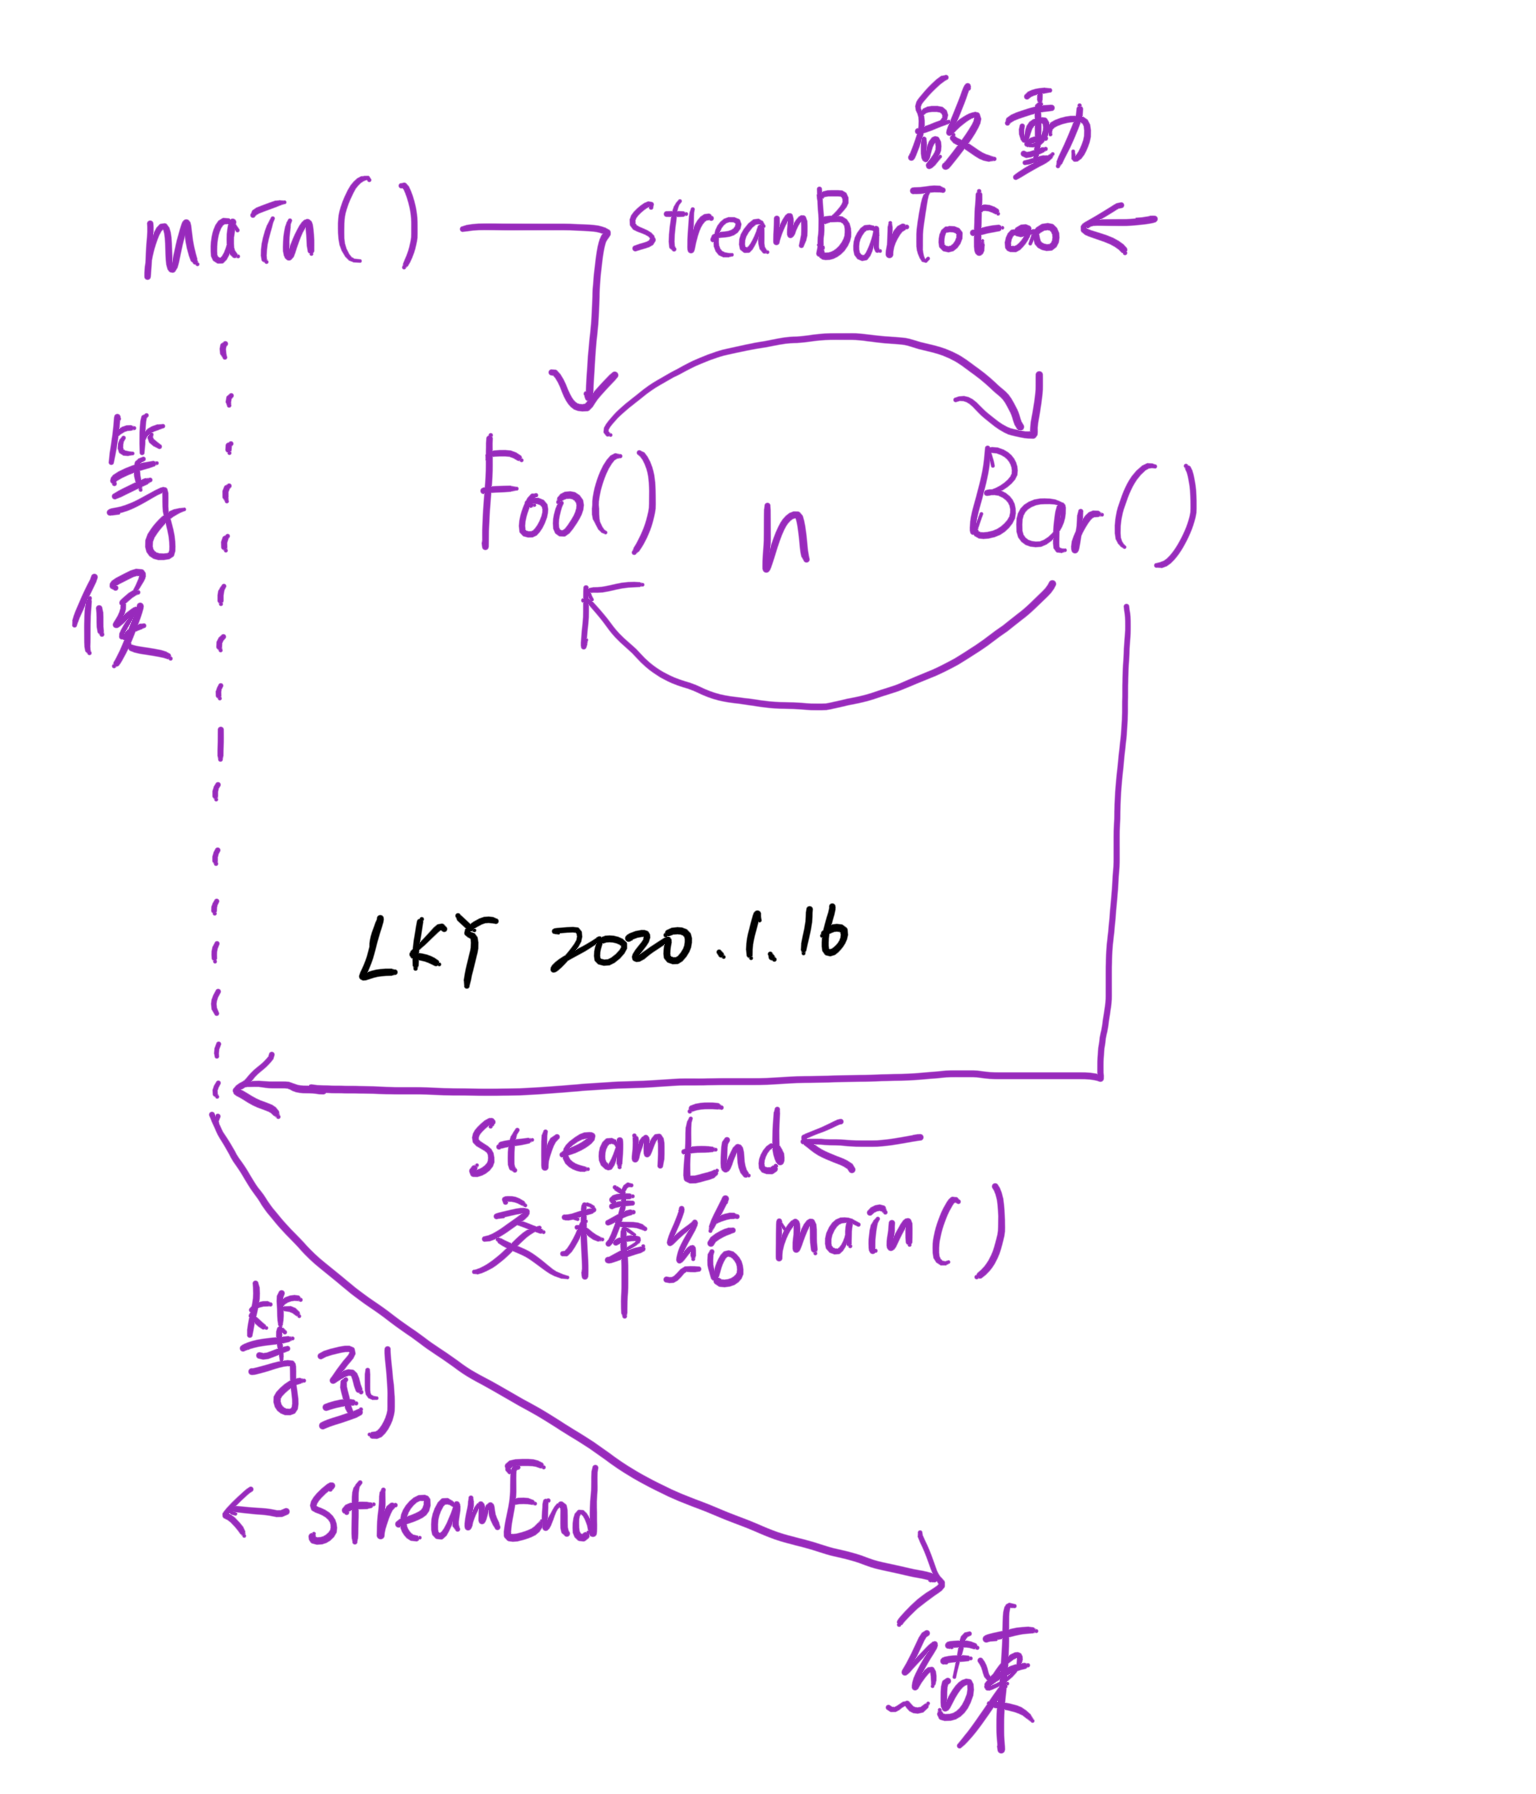 啟動
main() streamBarToFoo ←
等候
Foo() n Bar()
LKY 2020.1.16
streamEnd ←
交棒給 main()
等到
← streamEnd
結束